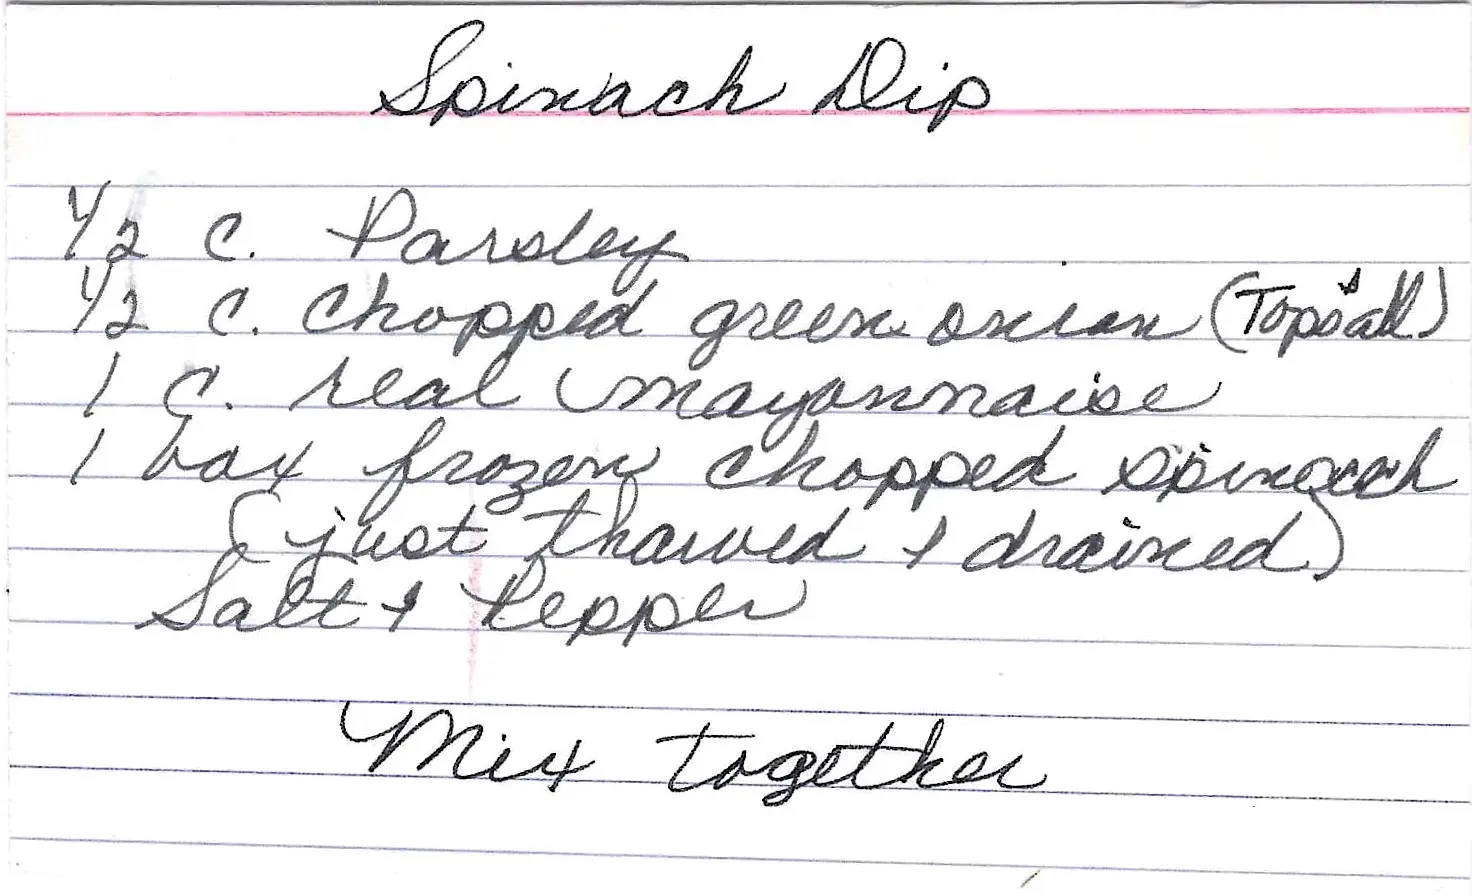 Spinach Dip
1/2 c. Parsley
1/2 c. chopped green onion (Tops & all)
1 c. real mayonnaise
1 box frozen chopped spinach
(just thawed & drained)
Salt & Pepper
Mix together